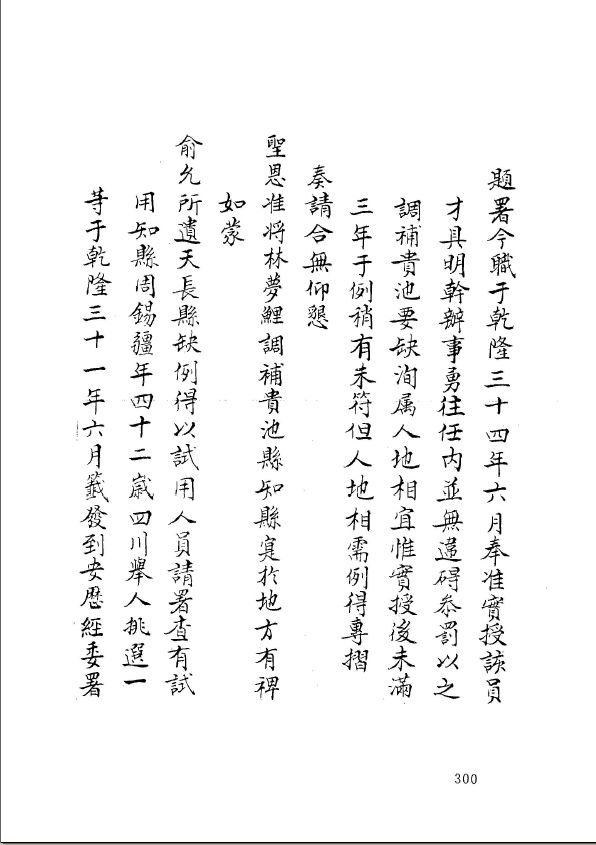 題署今職于乾隆三十四年六月奉准實授該員
才具明幹辦事勇往任內並無違碍叅罰以之
調補貴池要缺洵属人地相宜惟實授後未滿
三年于例稍有未符但人地相需例得專摺
奏請合無仰懇
聖恩准將林夢鯉調補貴池縣知縣寔於地方有裨
如蒙
俞允所遺天長縣缺例得以試用人員請署查有試
用知縣周錫疆年四十二歲四川舉人挑選一
等于乾隆三十一年六月籤發到安歷經委署
300